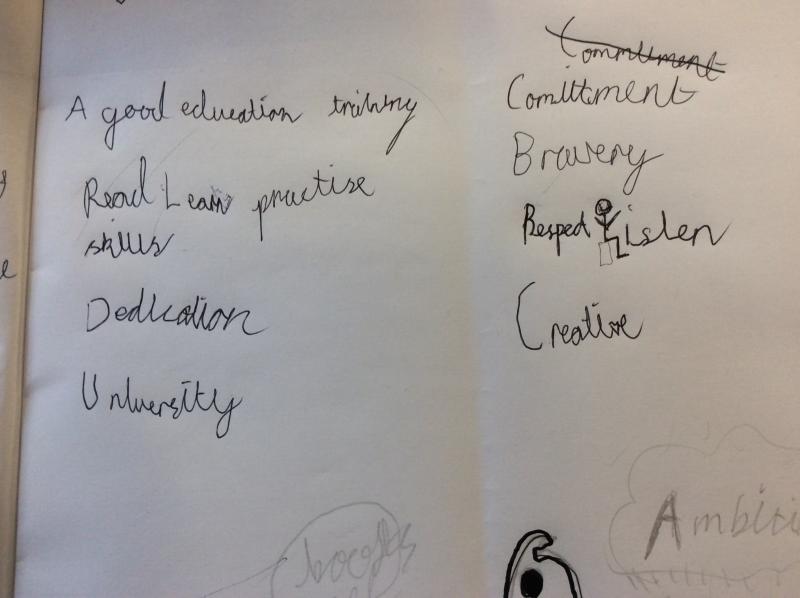 A good education training
Read Learn practise
skills
Dedication
University
Commitment
Comittment
Bravery
Respect Listen
Creative
Ambiti